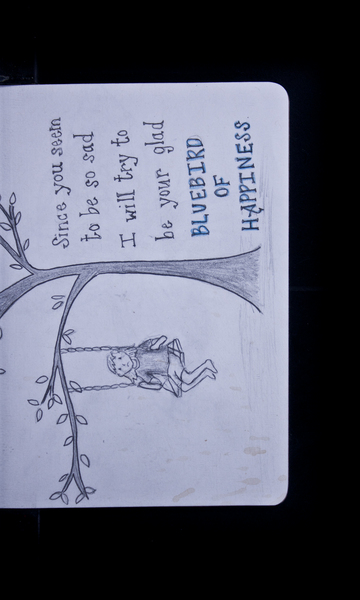 Since you seem
to be so sad
I will try to
be your glad
BLUEBIRD
OF
HAPPINESS